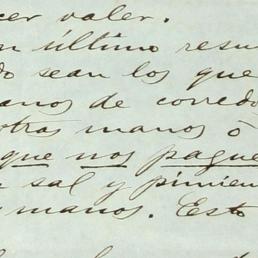 cer valer.
n último resu
do sean los que
anos de corredo
otras manos ó
que nos pague
n sal y pimien
s manos. Esto